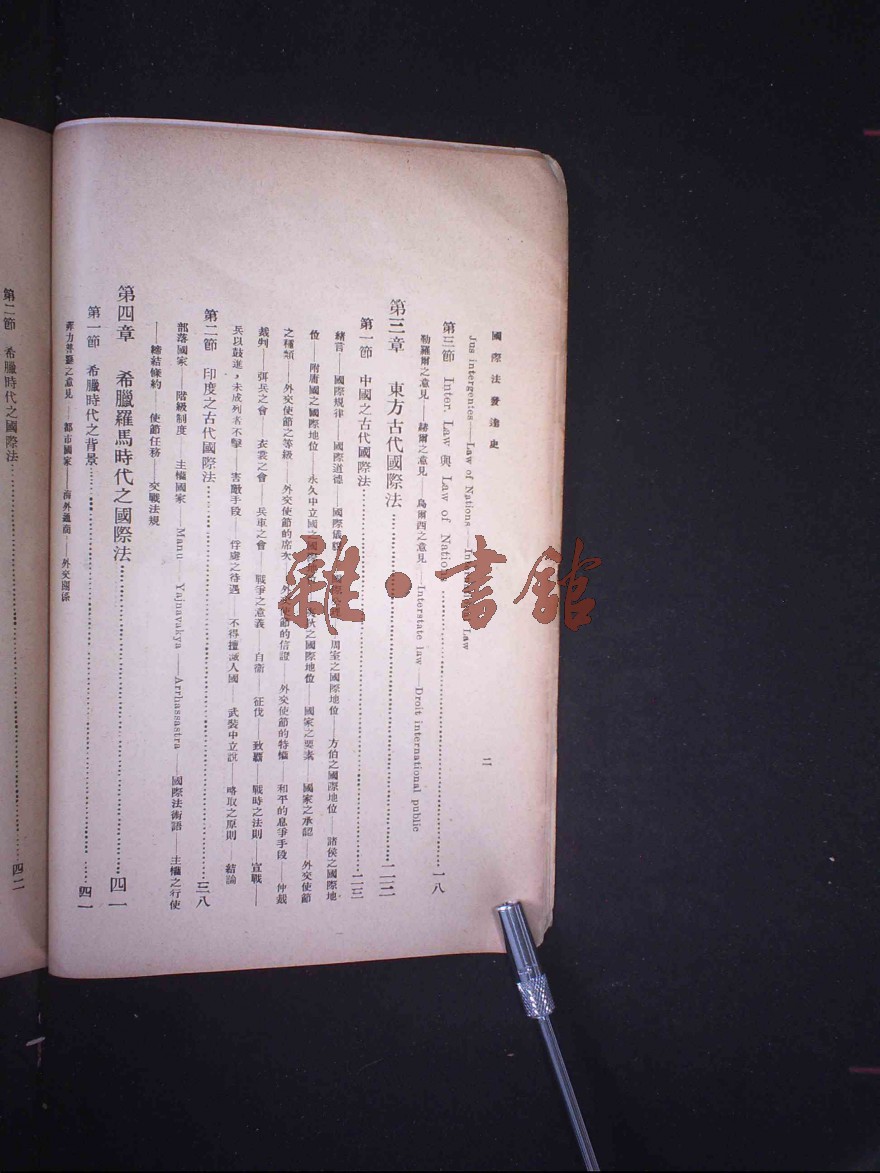 國際法發達史
二
Jus intergenies——Law of Nations——In Law
第三節 Inter. Law 與 Law of Nation 一八
勒羅爾之意見——赫爾之意見——烏爾西之意見——Interstate law——Droit international public
第三章 東方古代國際法 二三
第一節 中國之古代國際法 二三
緒言——國際規律——國際道德——國際儀 周室之國際地位——方伯之國際地位——諸侯之國際地
位——附庸國之國際地位——永久中立國之國 之國際地位——國家之要素——國家之承認——外交使節
之種類——外交使節之等級——外交使節的席次——外交使節的信證——外交使節的特權——和平的息爭手段——仲裁
裁判——弭兵之會——衣裳之會——兵車之會——戰爭之意義——自衞——征伐——致霸——戰時之法則——宣戰——
兵以鼓進，未成列者不擊——害敵手段——俘虜之待遇——不得擅滅人國——武裝中立說——略取之原則——結論
第二節 印度之古代國際法 三八
部落國家——階級制度——主權國家——Manu——Yajnavakya——Arrhassastra——國際法術語——主權之行使
——締結條約——使節任務——交戰法規
第四章 希臘羅馬時代之國際法 四一
第一節 希臘時代之背景 四一
菲力普孫之意見——都市國家——海外通商——外交關係
第二節 希臘時代之國際法 四二
雜·書館